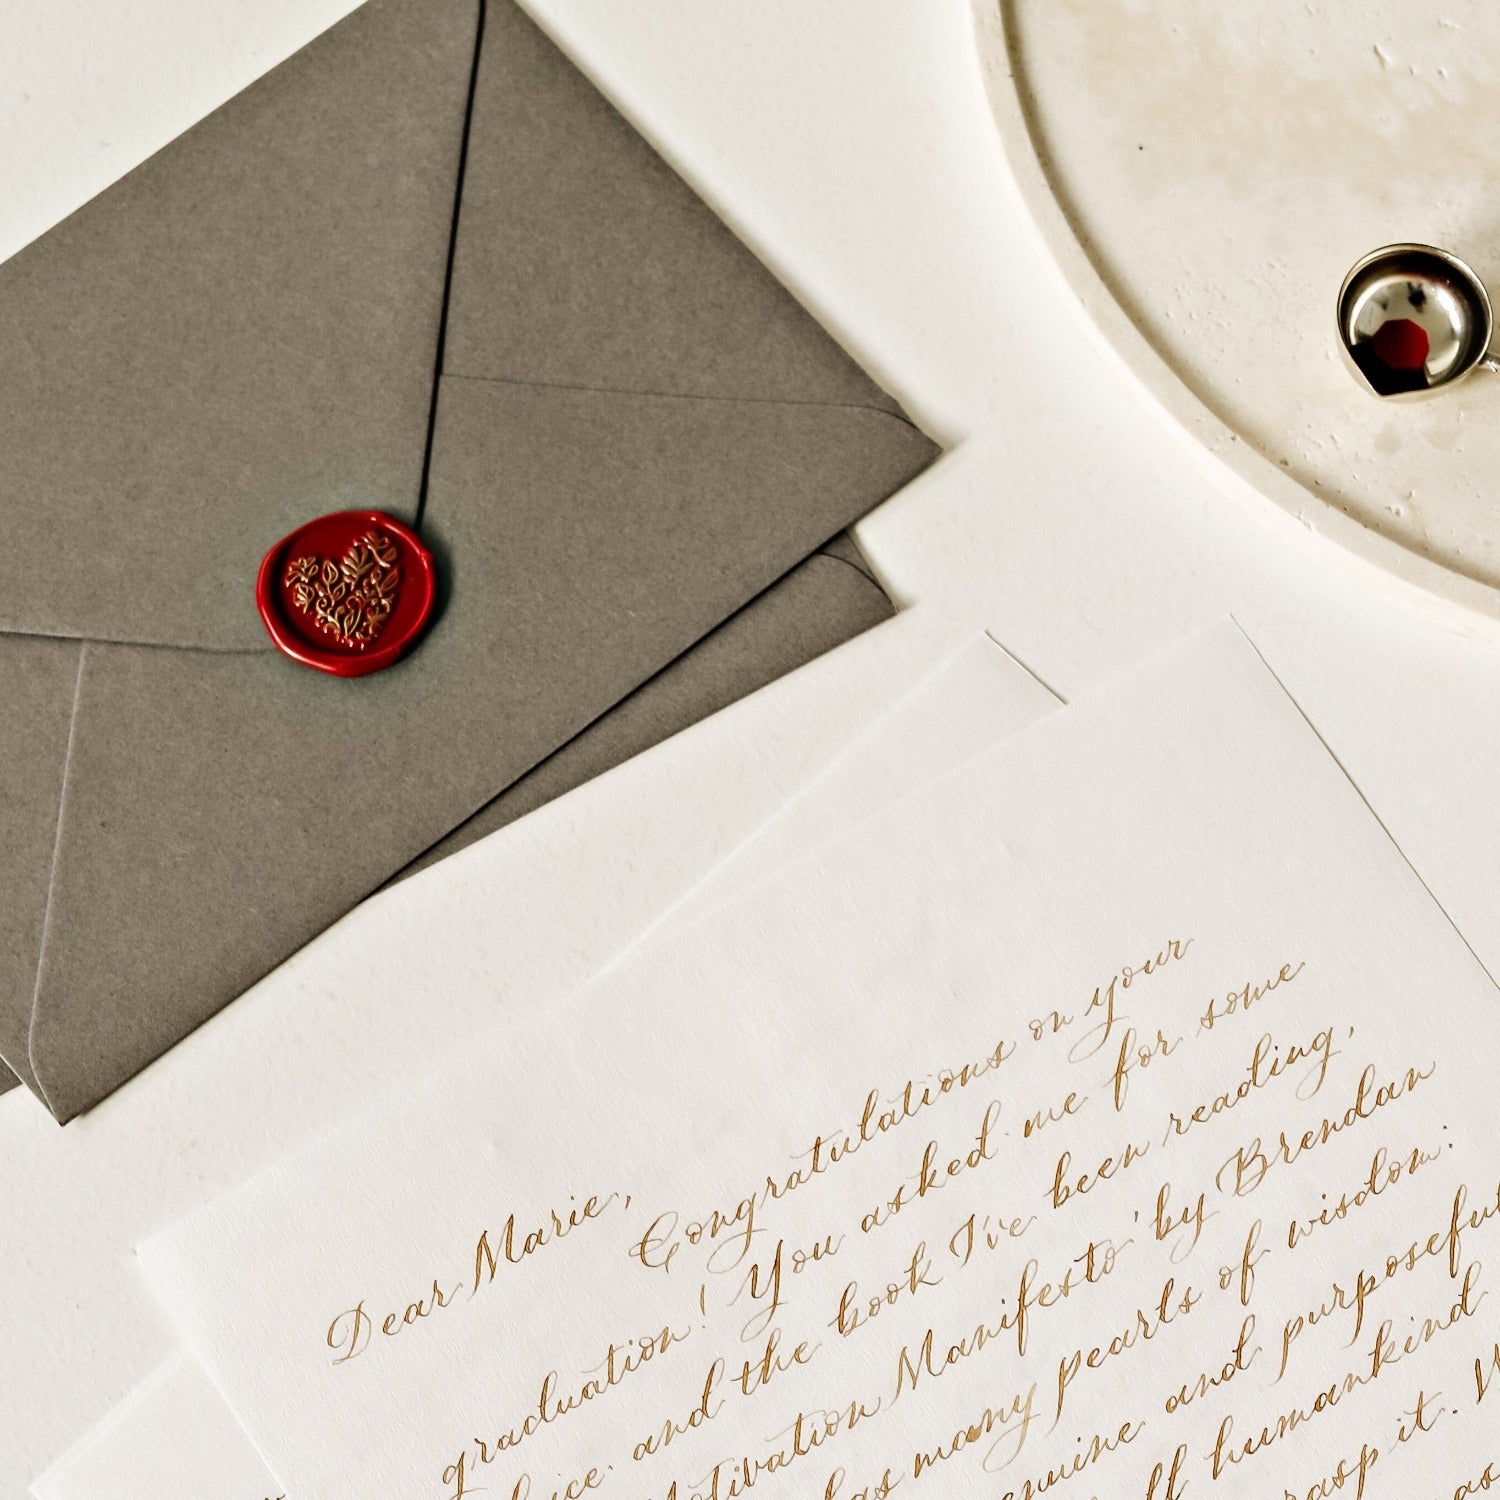 Dear Marie,
Congratulations on your
graduation! You asked me for some
and the book I've been reading,
Motivation Manifesto' by Brendan
has many pearls of wisdom:
genuine and purposeful
humankind
it.